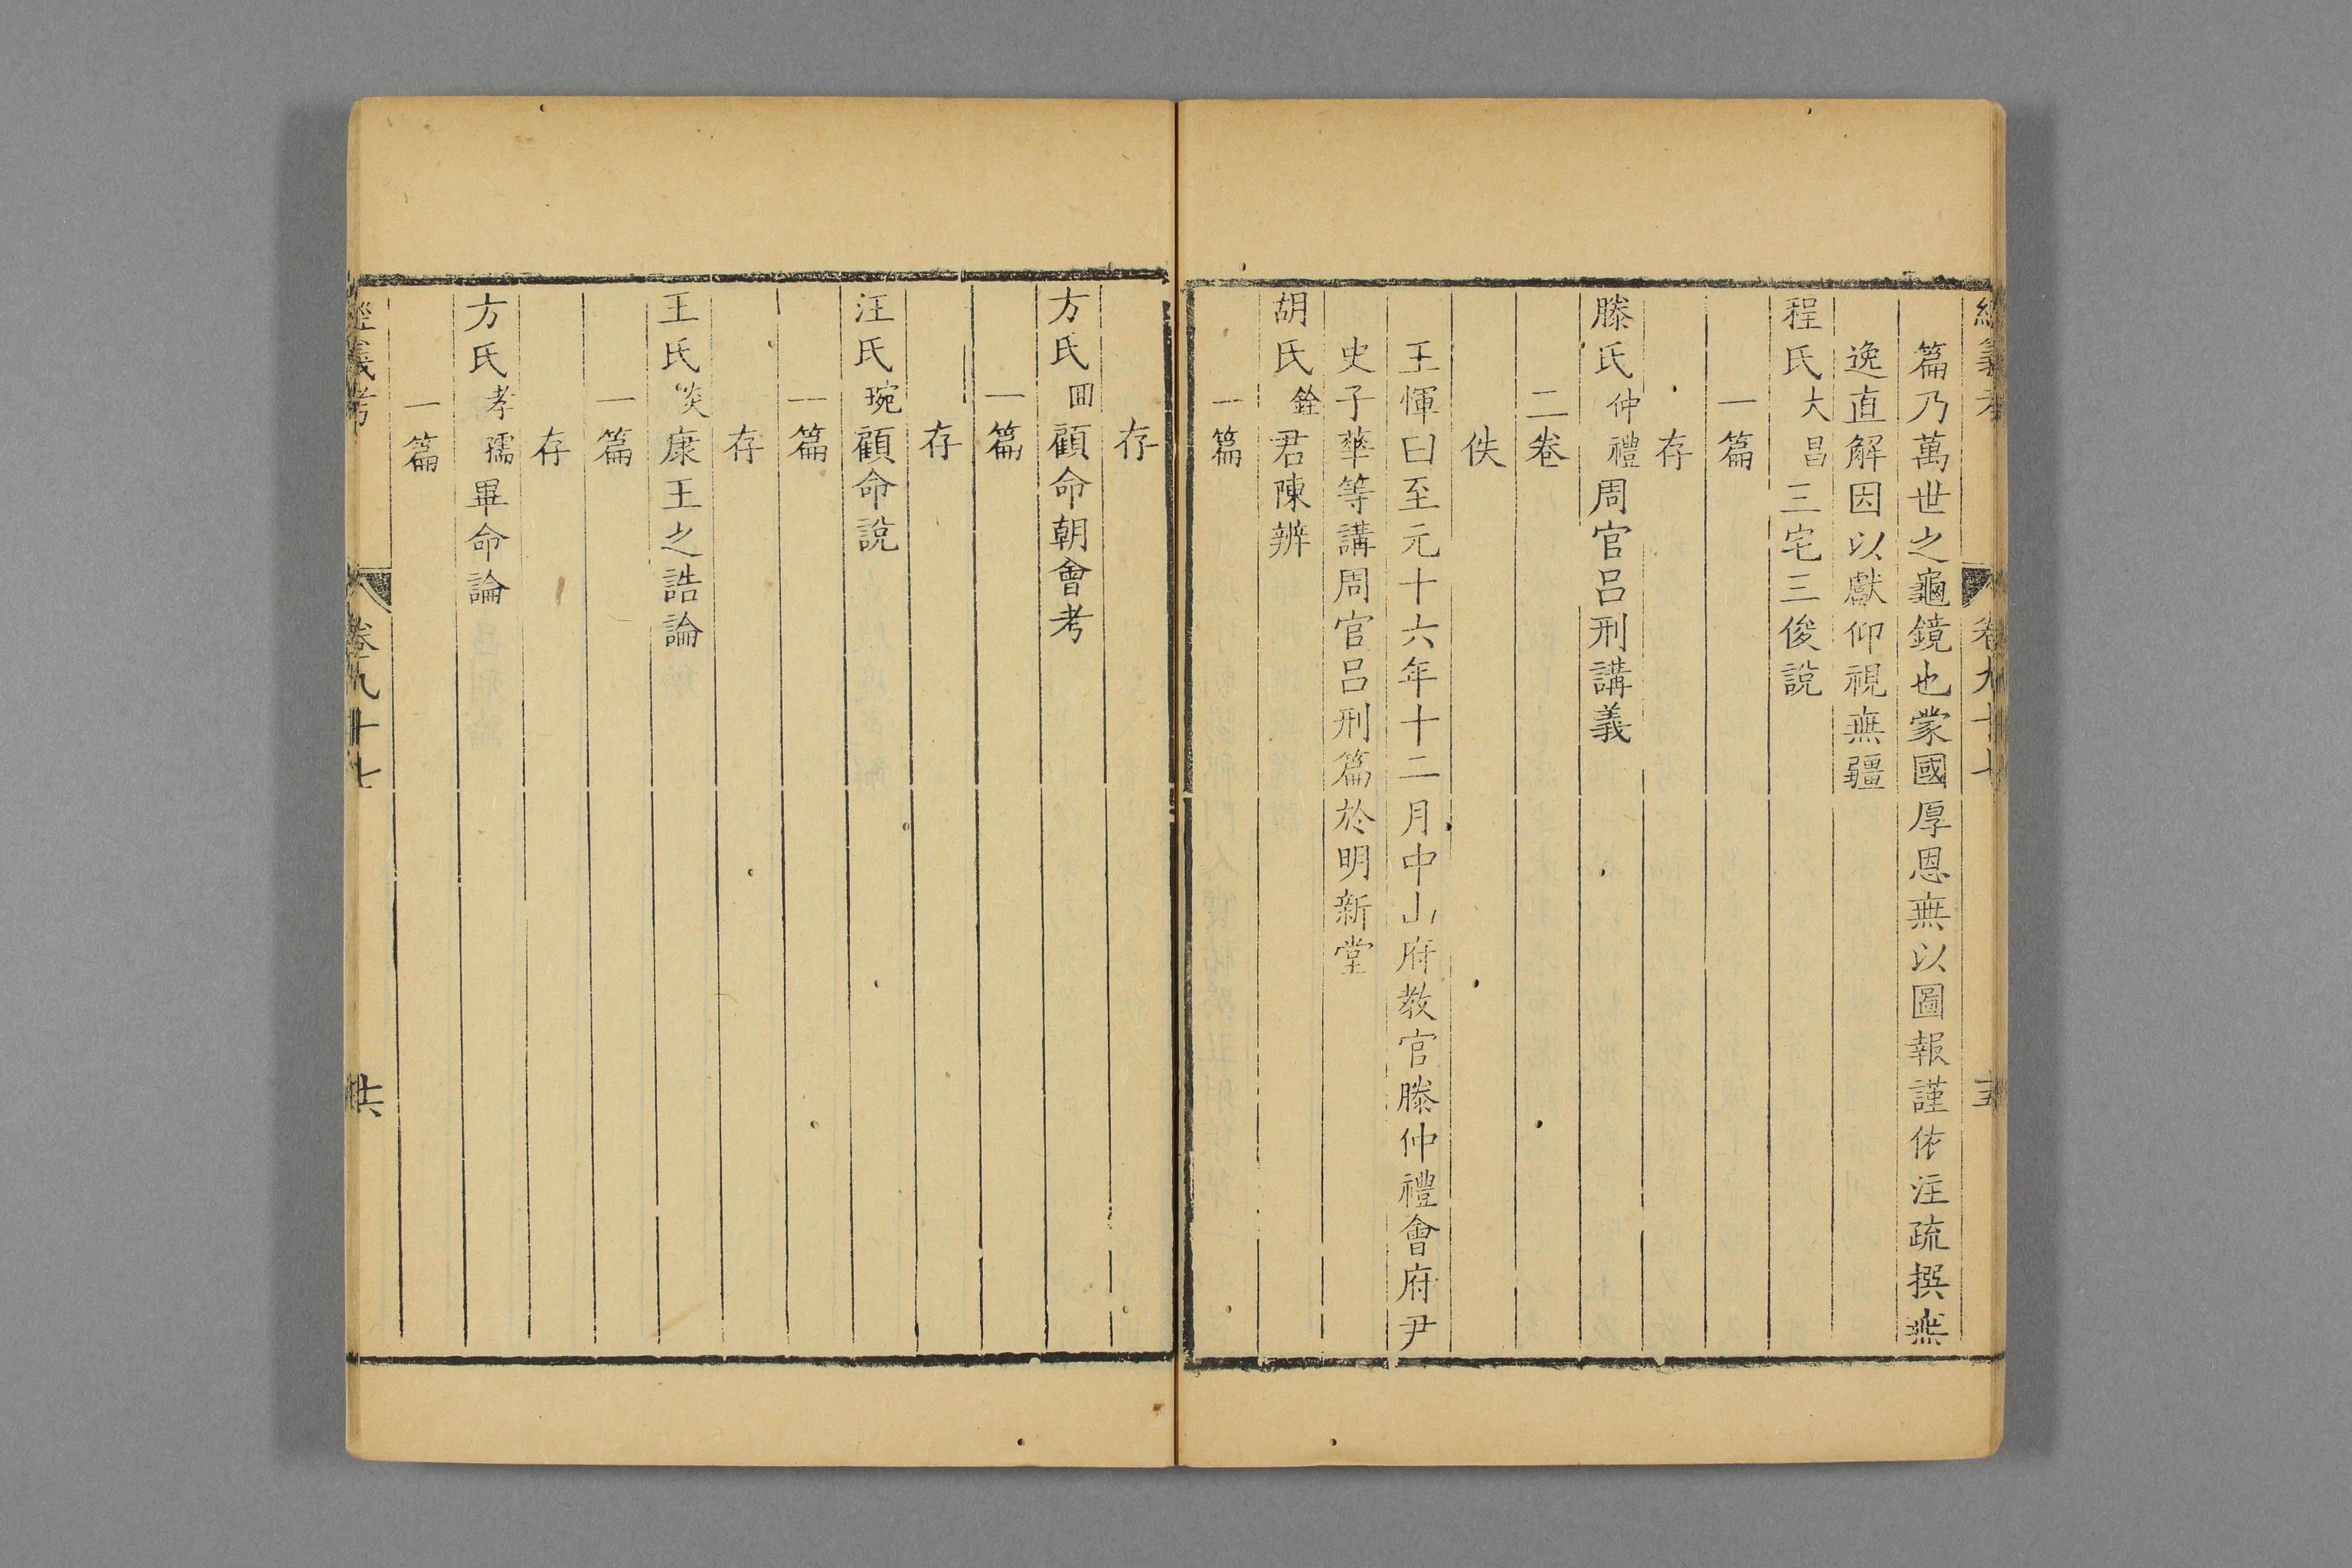 經義考 卷九十七 十五
篇乃萬世之龜鏡也蒙國厚恩無以圖報謹依注疏撰無
逸直解因以獻仰視無疆
程氏大昌三宅三俊說
一篇
存
滕氏仲禮周官呂刑講義
二卷
佚
王惲曰至元十六年十二月中山府教官滕仲禮會府尹
史子華等講周官呂刑篇於明新堂
胡氏銓君陳辨
一篇
存
方氏回顧命朝會考
一篇
存
汪氏琬顧命說
一篇
存
王氏炎康王之誥論
一篇
存
方氏孝孺畢命論
一篇
經義考 卷九十七